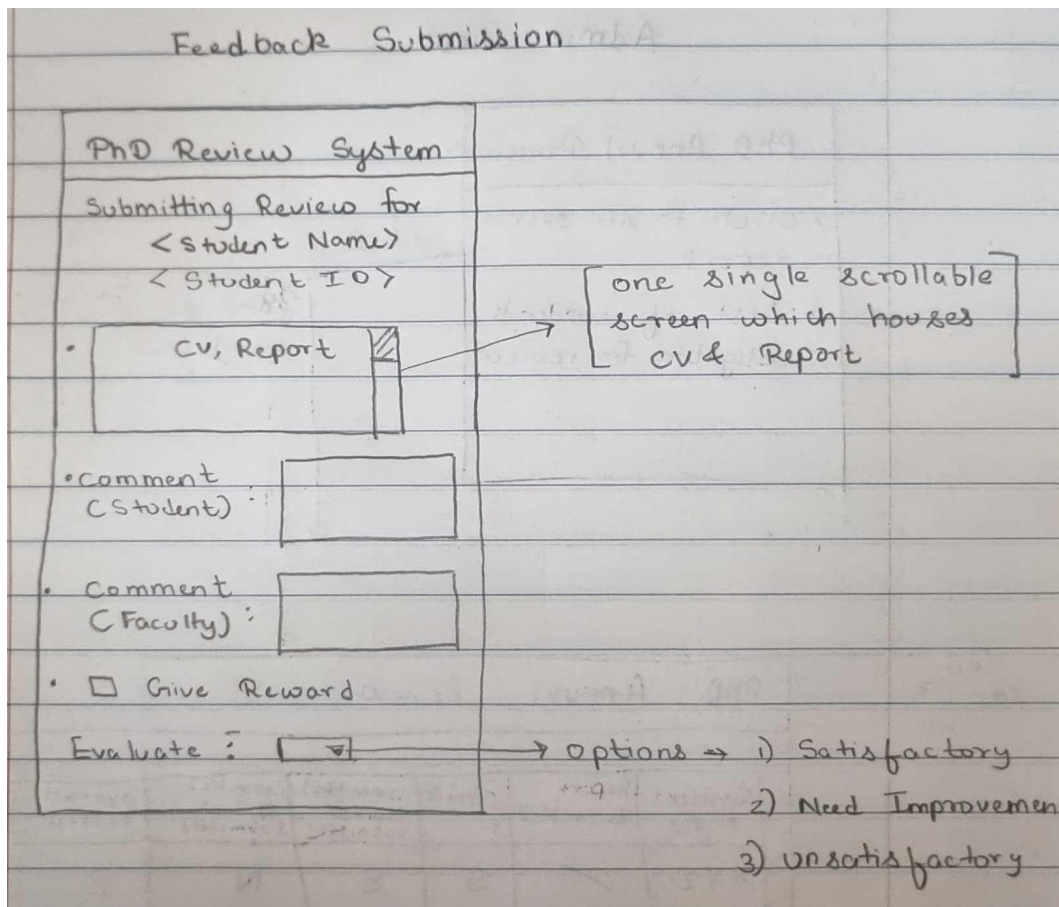 Feedback Submission
PhD Review System
Submitting Review for
<Student Name>
<Student ID>
CV, Report
one single scrollable
screen which houses
CV & Report
• Comment
(Student) :
• Comment
(Faculty) :
• Give Reward
Evaluate : → options → 1) Satisfactory
2) Need Improvemen
3) Unsatisfactory